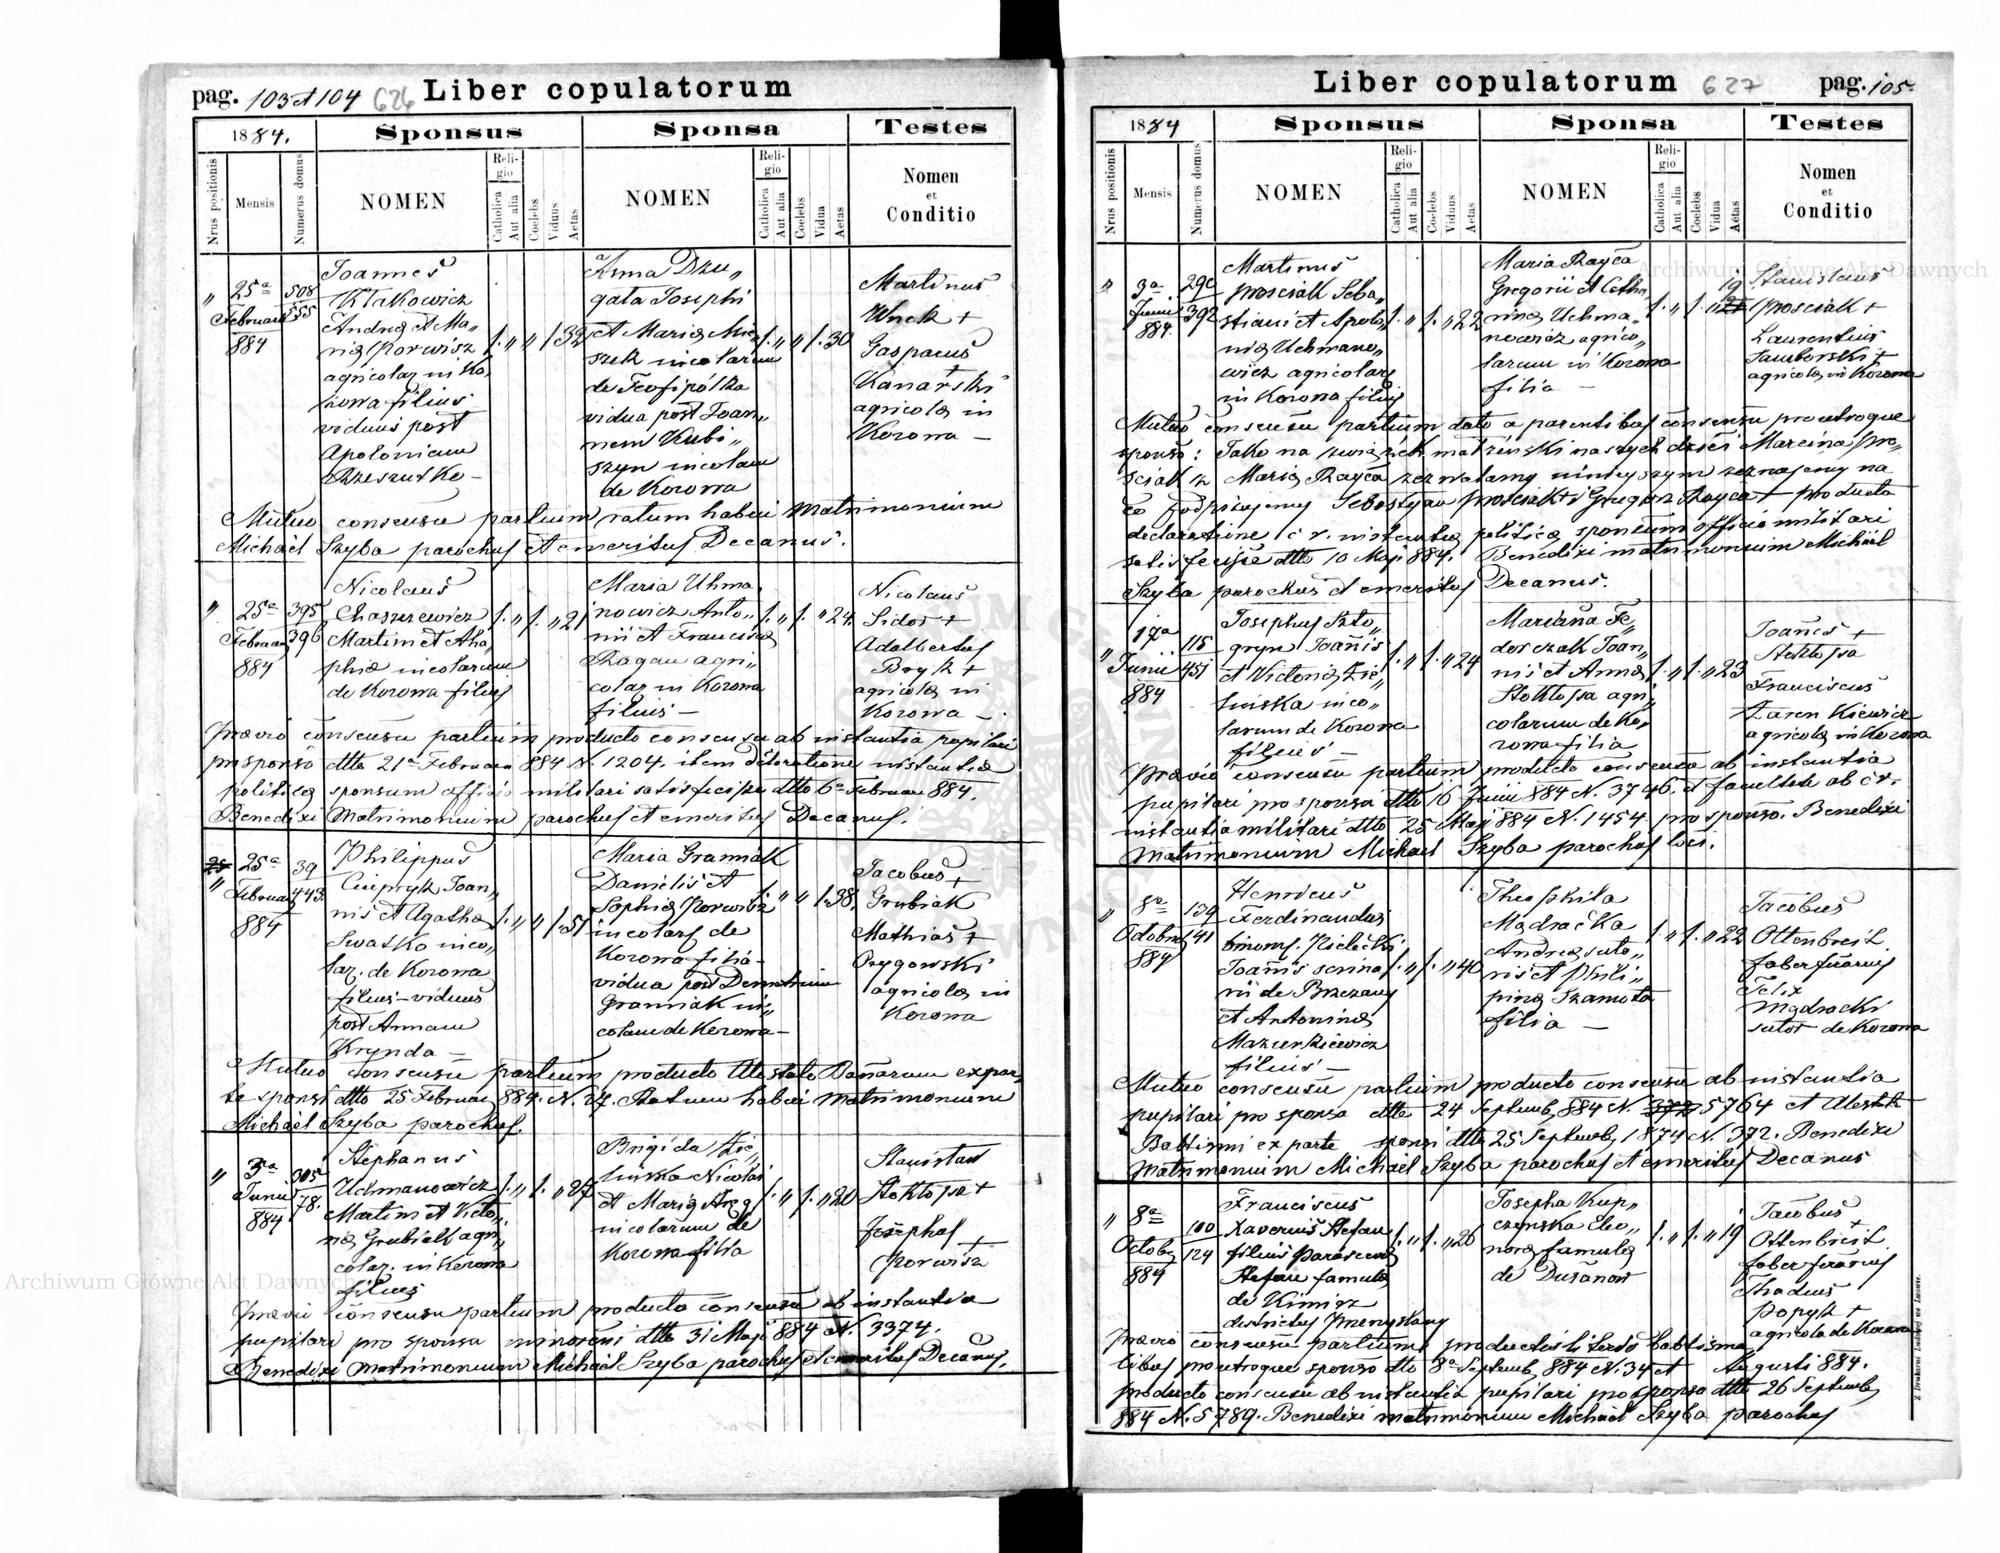 pag. 103 et 104 626 Liber copulatorum
1884.
Sponsus
Sponsa
Testes
Nrus positionis
Mensis
Numerus domus
NOMEN
Religio
Catholica
Aut alia
Coelebs
Viduus
Aetas
NOMEN
Religio
Catholica
Aut alia
Coelebs
Vidua
Aetas
Nomen
et
Conditio
"
25ª
Februarii
884
508
555
Joannes
Kłakowicz
Andreæ et Ma„
riæ Porwisz
agricolar. in Ko„
zowa filius
viduus post
Apoloniam
Rzeszutko –
1. " " 1. 32
Anna Dzu„
gała Josephi
et Mariæ Mie„
szek incolarum
de Teofipólka
vidua post Joan„
nem Kubi„
szyn incolam
de Kozowa
1. " " 1. 30
Martinus
Wnek +
Gasparus
+
Kanarski
agricolæ in
Kozowa –
Mutuo consensu partium ratum habui Matrimonium
Michael Szyba parochus et emeritus Decanus.
"
25ª
Februarii
884
395
396
Nicolaus
Chaszczewicz
Martini et Aha„
phiæ incolarum
de Kozowa filius
1. " 1. " 21
Maria Uhma„
nowicz Anto„
nii et Franciscæ
Ragan agri„
colar. in Kozowa
filius –
1. " 1. " 24.
Nicolaus
Sidor +
Adalbertus
Bryk +
agricolæ in
Kozowa –
Prævio consensu partium producto consensu ab instantia pupilari
pro sponso dtto 21ª Februarii 884 N. 1204. item declaratione instantiæ
politicæ sponsum officio militari satisfecisse dtto 6ª Februar 884.
Benedixi Matrimonium parochus et emeritus Decanus.
"
25ª
Februarii
884
39
443.
Philippus
Joan„
nis et Agathæ
Swatko inco„
lar. de Kozowa
filius – viduus
post Annam
Krynda –
1. " " 1. 51
Maria Graniak
Danielis et
Sophiæ Porwisz
incolar. de
Kozowa filia –
vidua post Demetrium
Graniak in„
colam de Kozowa –
1. " " 1. 38.
Jacobus +
Grubiak
Mathias +
Ozygowski
agricolæ in
Kozowa
Mutuo consensu partium producto Atestato Banorum ex par„
te sponsi dtto 25 Februar 884. N. 27. Ratum habui Matrimonium
Michael Szyba parochus.
"
3ª
Junii
884
305
78.
Stephanus
Uchmanowicz
Martini et Victo„
riæ Grubiak agri„
colar. in Kozowa
filius
1. " 1. " 27
Brigida Zie„
linska Nicolai
et Mariæ
incolarum de
Kozowa filia
1. " 1. " 20
Stanislaus
Stokłosa +
Josephus
+
Porwisz
Prævio consensu partium producto consensu ab instantia
pupilari pro sponsa minoreni dtto 31 Maji 884 N. 3374.
Benedixi Matrimonium Michael Szyba parochus et emeritus Decanus.
Liber copulatorum 627 pag. 105
1884
Sponsus
Sponsa
Testes
Nrus positionis
Mensis
Numerus domus
NOMEN
Religio
Catholica
Aut alia
Coelebs
Viduus
Aetas
NOMEN
Religio
Catholica
Aut alia
Coelebs
Vidua
Aetas
Nomen
et
Conditio
"
3ª
Junii
884.
290
392
Martinus
Prosciak Seba„
stiani et Apolo„
niæ Uchmano„
wicz agricolar.
in Kozowa filius
1. " 1. " 22
Maria Rayca
Gregorii et Catha„
rinæ Uchma„
nowicz agrico„
larum in Kozowa
filia –
1. " 1. " 19
Stanislaus
Prosciak +
Laurentius
Jaworski +
agricolæ in Kozowa
Mutuo consensu partium dato a parentibus consensu pro utroque
sponso: Jako na związek małżeński naszych dzieci Marcina Pro„
sciak z Marią Rayca zezwalamy niniejszym zeznajemy na
co podpisujemy Sebastyan Prosciak + i Gregorz Rayca + – producta
declaratione c. r. instantiæ politicæ sponsum officio militari
satisfecisse dtto 10 Maji 884. Benedixi matrimonium Michael
Szyba parochus et emeritus Decanus.
"
17ª
Junii
884
115
451
Josephus Szto„
gryn Joannis
et Victoriæ Zie„
linska inco„
larum de Kozowa
filius –
1. " 1. " 24
Marianna Fe„
dorczak Joan„
nis et Annæ
Stokłosa agri„
colarum de Ko„
zowa filia
1. " 1. " 23
Joannes +
Stokłosa
Franciscus
+
agricolæ in Kozowa
Prævio consensu partium producto consensu ab instantia
pupilari pro sponsa dtto 16 Junii 884 N. 3746. et facultate ab c. r.
instantia militari dtto 25 Maji 884 N. 1454 pro sponso. Benedixi
Matrimonium Michael Szyba parochus loci.
"
8ª
Octobris
884
139
141
Henricus
Ferdinandus
binom. Kielecki
Joannis
de Brzezany
et Antoninæ
Mazurkiewicz
filius –
1. " 1. " 40
Theophila
Mądracka
Andreæ suto„
ris et Phili„
pinæ Szamota
filia –
1. " 1. " 22
Jacobus
Ottenbreit
faber ferarius
Felix
Mądracki
sutor de Kozowa
Mutuo consensu partium producto consensu ab instantia
pupilari pro sponsa dtto 24 Septemb. 884 N. 5764 et Atestato
Babtismi ex parte sponsi dtto 25 Septemb. 1874 N. 372. Benedixi
Matrimonium Michael Szyba parochus et emeritus Decanus
"
8ª
Octobr.
884
100
124
Franciscus
Xaverius Stefan
filius Parascevæ
Stefan famulæ
de Kimirz
districtus Przemyslany
1. " 1. " 26
Josepha Kup„
czynska Eleo„
noræ famulæ
de Dusanow
1. " 1. " 19
Jacobus
+
Ottenbreit
faber ferarius
Thadeus
Popyk +
agricola de Kozowa
Prævio consensu partium productis literis babtisma„
libus pro utroque sponso dto 8ª Septemb. 884 N. 34 et Augusti 884.
producto consensu ab instantia pupilari pro sponsa dtto 26 Septemb.
884 N. 5789. Benedixi matrimonium Michael Szyba parochus
Z Drukarni Ludowej we Lwowie.
Archiwum Główne Akt Dawnych
Archiwum Główne Akt Dawnych